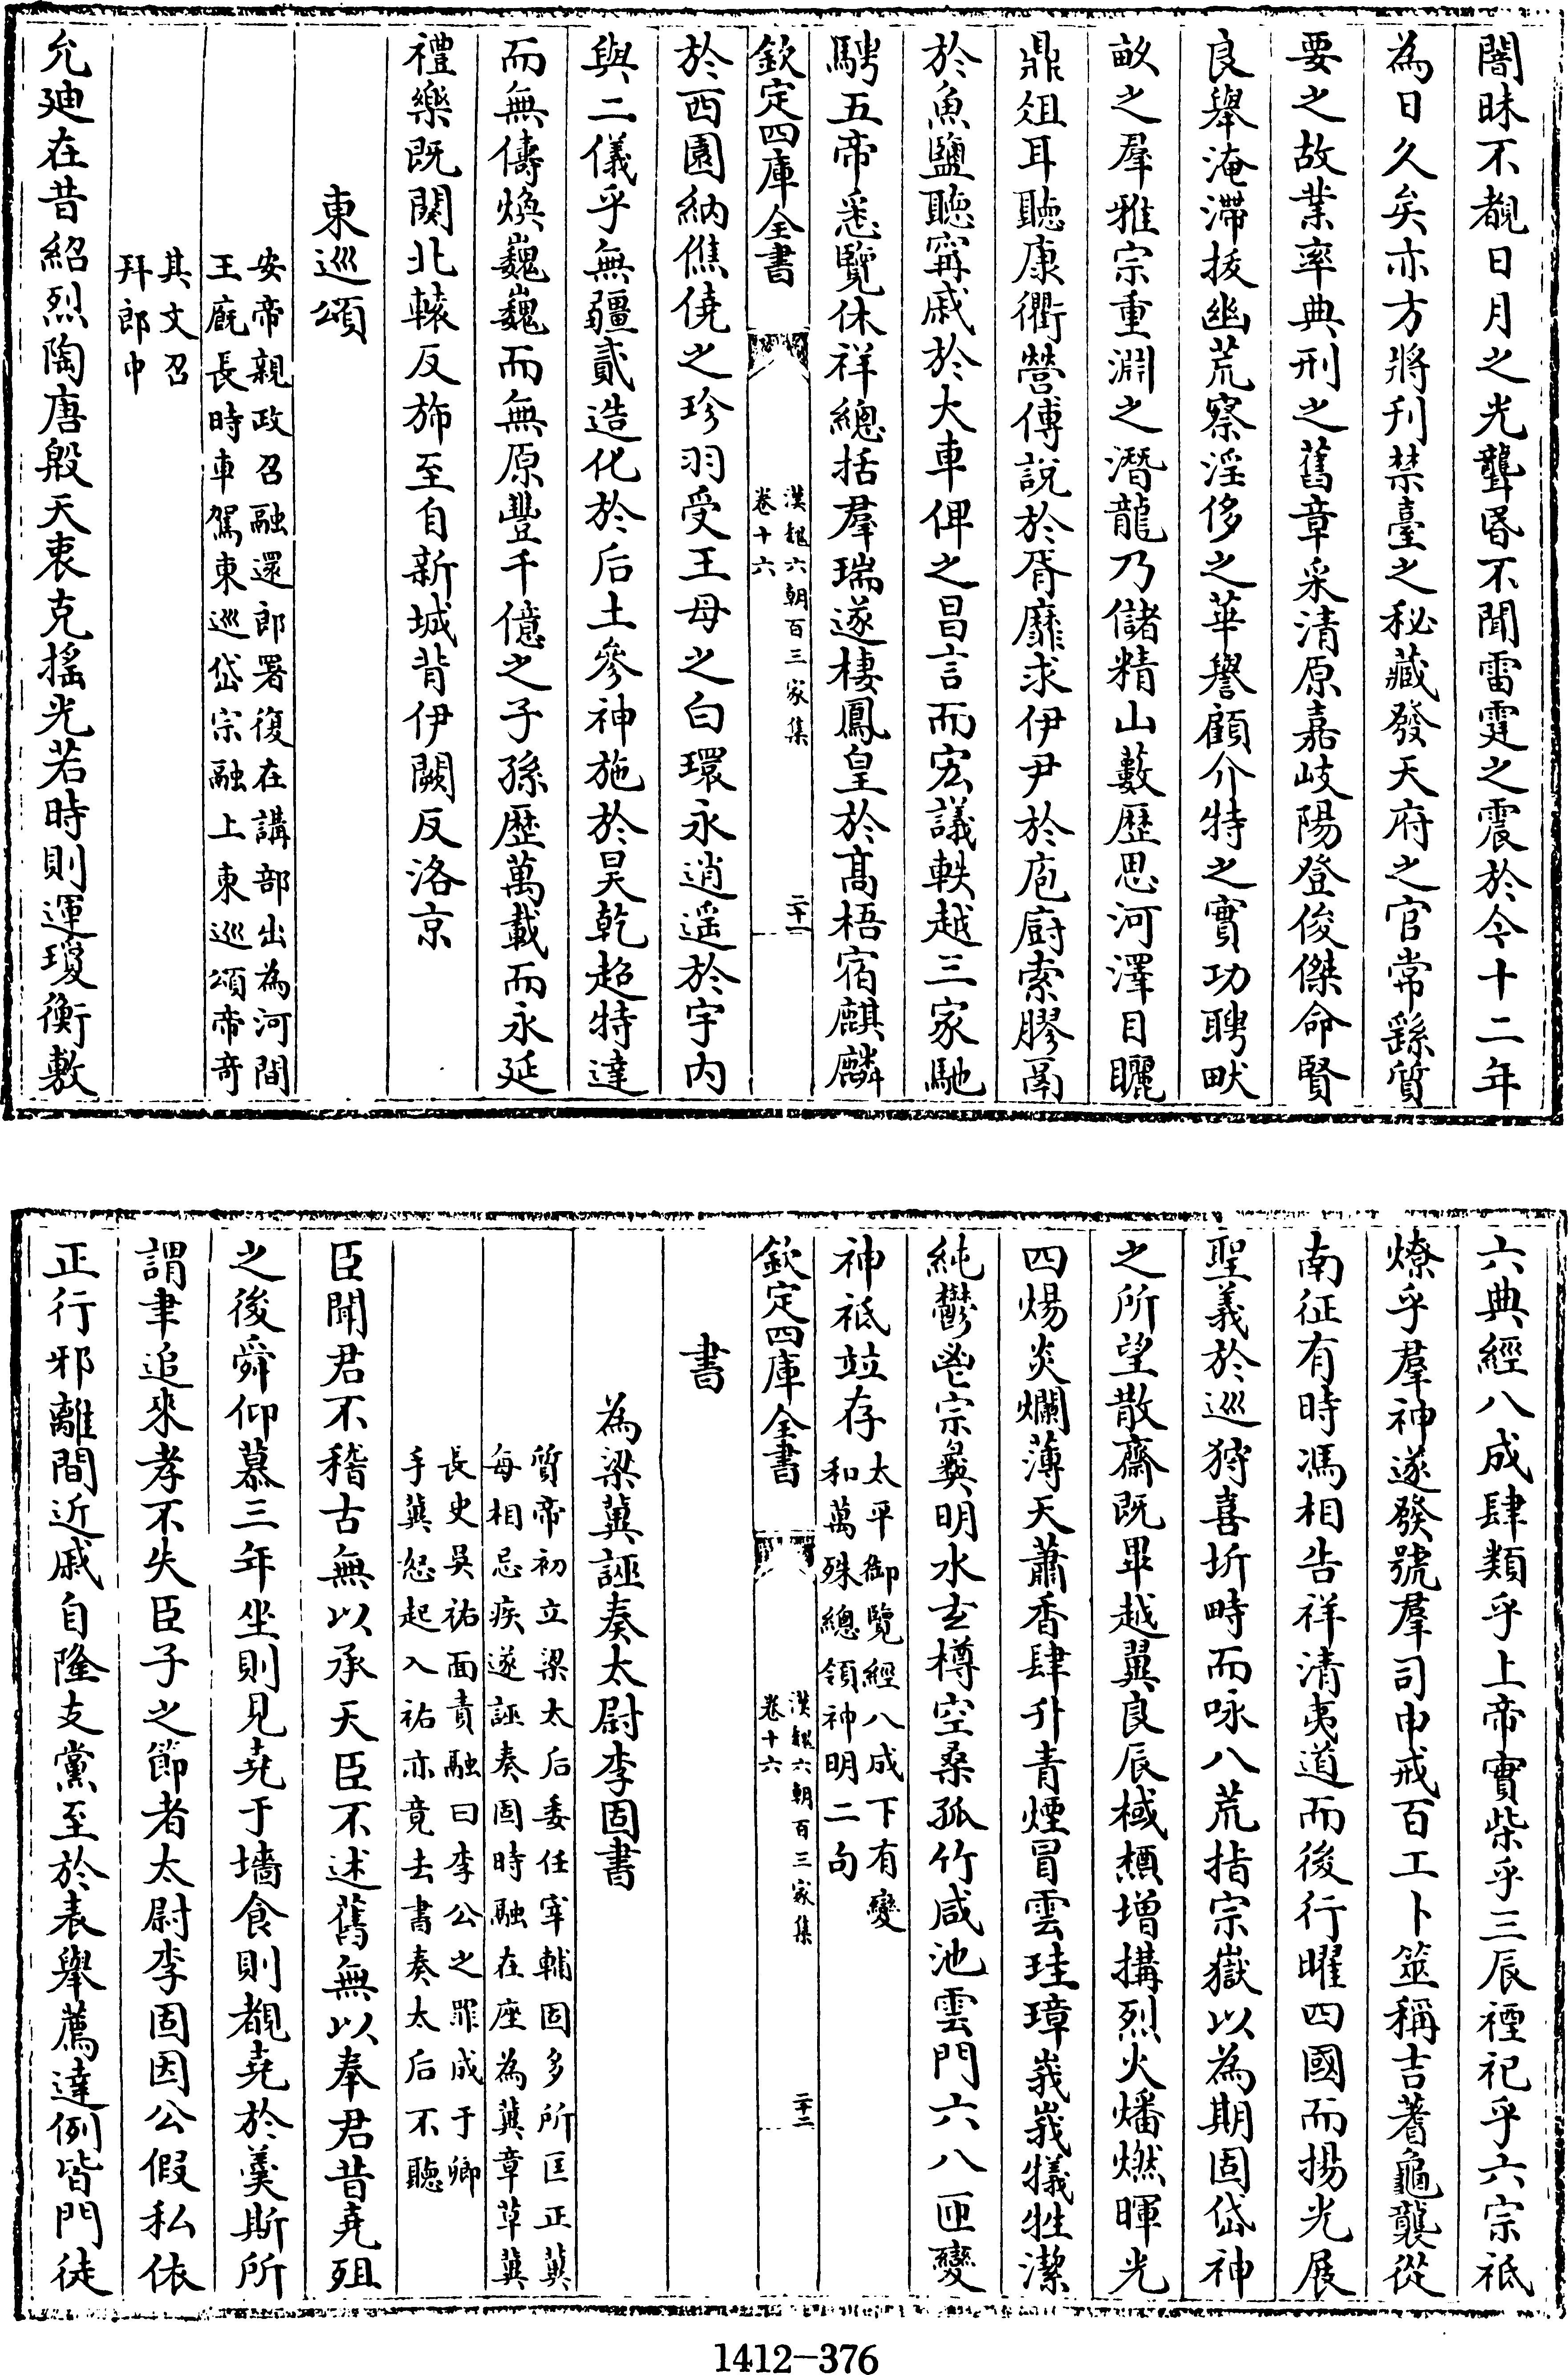 闇昧不覩日月之光聾昏不聞雷霆之震於今十二年
為日久矣亦方將刋禁臺之秘藏發天府之官常繇質
要之故業率典刑之舊章采清原嘉岐陽登俊傑命賢
良舉淹滯拔幽荒察淫侈之華譽顧介特之實功聘畎
畝之羣雅宗重淵之潛龍乃儲精山藪歴思河澤目矖
鼎俎耳聽康衢營傅說於胥靡求伊尹於庖廚索膠鬲
於魚鹽聽甯戚於大車俾之昌言而宏議軼越三家馳
騁五帝悉覽休祥總括羣瑞遂棲鳳皇於髙梧宿麒麟
欽定四庫全書
漢魏六朝百三家集
卷十六
二十一
於西園納僬僥之珍羽受王母之白環永逍遥於宇内
與二儀乎無疆貳造化於后土參神施於昊乾超特達
而無儔煥巍巍而無原豐千億之子孫歴萬載而永延
禮樂既闋北轅反斾至自新城背伊闕反洛京
東巡頌
安帝親政召融還郎署復在講部出為河間
王廐長時車駕東巡岱宗融上東巡頌帝奇
其文召
拜郎中
允廸在昔紹烈陶唐殷天衷克搖光若時則運瓊衡敷
六典經八成肆類乎上帝實柴乎三辰禋祀乎六宗祗
燎乎羣神遂發號羣司申戒百工卜筮稱吉蓍龜襲從
南征有時馮相告祥清夷道而後行曜四國而揚光展
聖義於巡狩喜圻畤而咏八荒指宗嶽以為期固岱神
之所望散齋既畢越翼良辰棫樸增搆烈火燔燃暉光
四煬炎爛薄天蕭香肆升青煙冒雲珪璋峩峩犧牲潔
純鬱鬯宗彝明水𤣥樽空桑孤竹咸池雲門六八匝變
神祗竝存
太平御覽經八成下有變
和萬殊總領神明二句
欽定四庫全書
漢魏六朝百三家集
卷十六
二十二
書
為梁冀誣奏太尉李固書
質帝初立梁太后委任宰輔固多所匡正冀
每相忌疾遂誣奏固時融在座為冀章草冀
長史吳祐面責融曰李公之罪成于卿
手冀怒起入祐亦竟去書奏太后不聽
臣聞君不稽古無以承天臣不述舊無以奉君昔堯殂
之後舜仰慕三年坐則見堯于墻食則覩堯於羹斯所
謂聿追來孝不失臣子之節者太尉李固因公假私依
正行邪離間近戚自隆支黨至於表舉薦達例皆門徒
1412-376